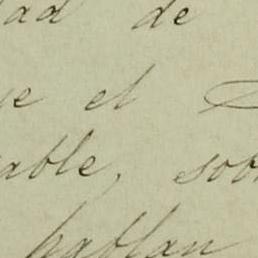 dad de
ue el
able, sob
hablan